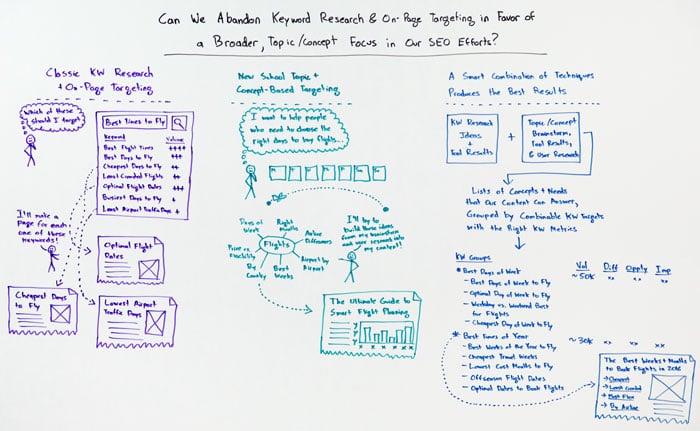 Can We Abandon Keyword Research & On-Page Targeting in Favor of
a Broader, Topic/Concept Focus in Our SEO Efforts?
Classic KW Research
+ On-Page Targeting
Which of these
should I target?
Best Times to Fly
Keyword Volume
Best Flight Times ++++
Best Days to Fly +++
Cheapest Days to Fly ++
Least Crowded Flights ++
Optimal Flight Dates +++
Busiest Days to Fly +
Least Airport Traffic Days +
I'll make a
page for each
one of these
keywords!
Optimal Flight
Dates
Cheapest Days
to Fly
Lowest Airport
Traffic Days
New School Topic +
Concept-Based Targeting
I want to help people
who need to choose the
right days to buy flights...
Flights
Days of
Week
Right
Months
Airline
Differences
Airport by
Airport
Best
Weeks
By
Country
Price vs
Flexibility
I'll try to
build these ideas
from my brainstorm
and user research into
my content!
The Ultimate Guide to
Smart Flight Planning
A Smart Combination of Techniques
Produces the Best Results
KW Research
Ideas
+
Tool Results
+
Topic/Concept
Brainstorm,
Tool Results,
& User Research
Lists of Concepts + Needs
that Our Content Can Answer,
Grouped by Combinable KW Targets
with the Right KW Metrics
KW Groups Vol Diff Oppty Imp
* Best Days of Week ~50K xx xx xx
- Best Days of Week to Fly
- Optimal Day of Week to Fly
- Weekday vs. Weekend Best
for Flights
- Cheapest Day of Week to Fly
* Best Times of Year ~30K xx xx xx
- Best Weeks of the Year to Fly
- Cheapest Travel Weeks
- Lowest Cost Months to Fly
- Offseason Flight Dates
- Optimal Dates to Book Flights
The Best Weeks + Months
to Book Flights in 2016
→ Cheapest
→ Least Crowded
→ Best Flex
→ By Airline